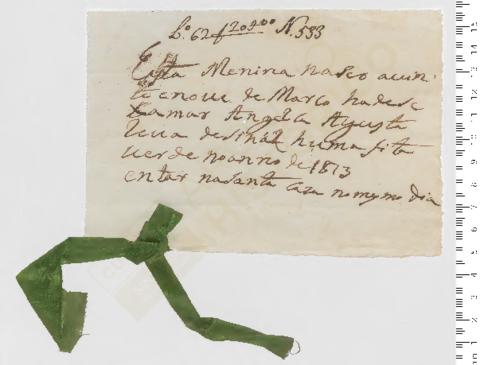 Lº 62 f 209 Nº 533
Esta Menina nasco auin
te enoue de Marco hadese
xamar Angela Agusta
leua desinal huma fita
uerde no anno de 1813
entar nasanta Caza nomesmo dia